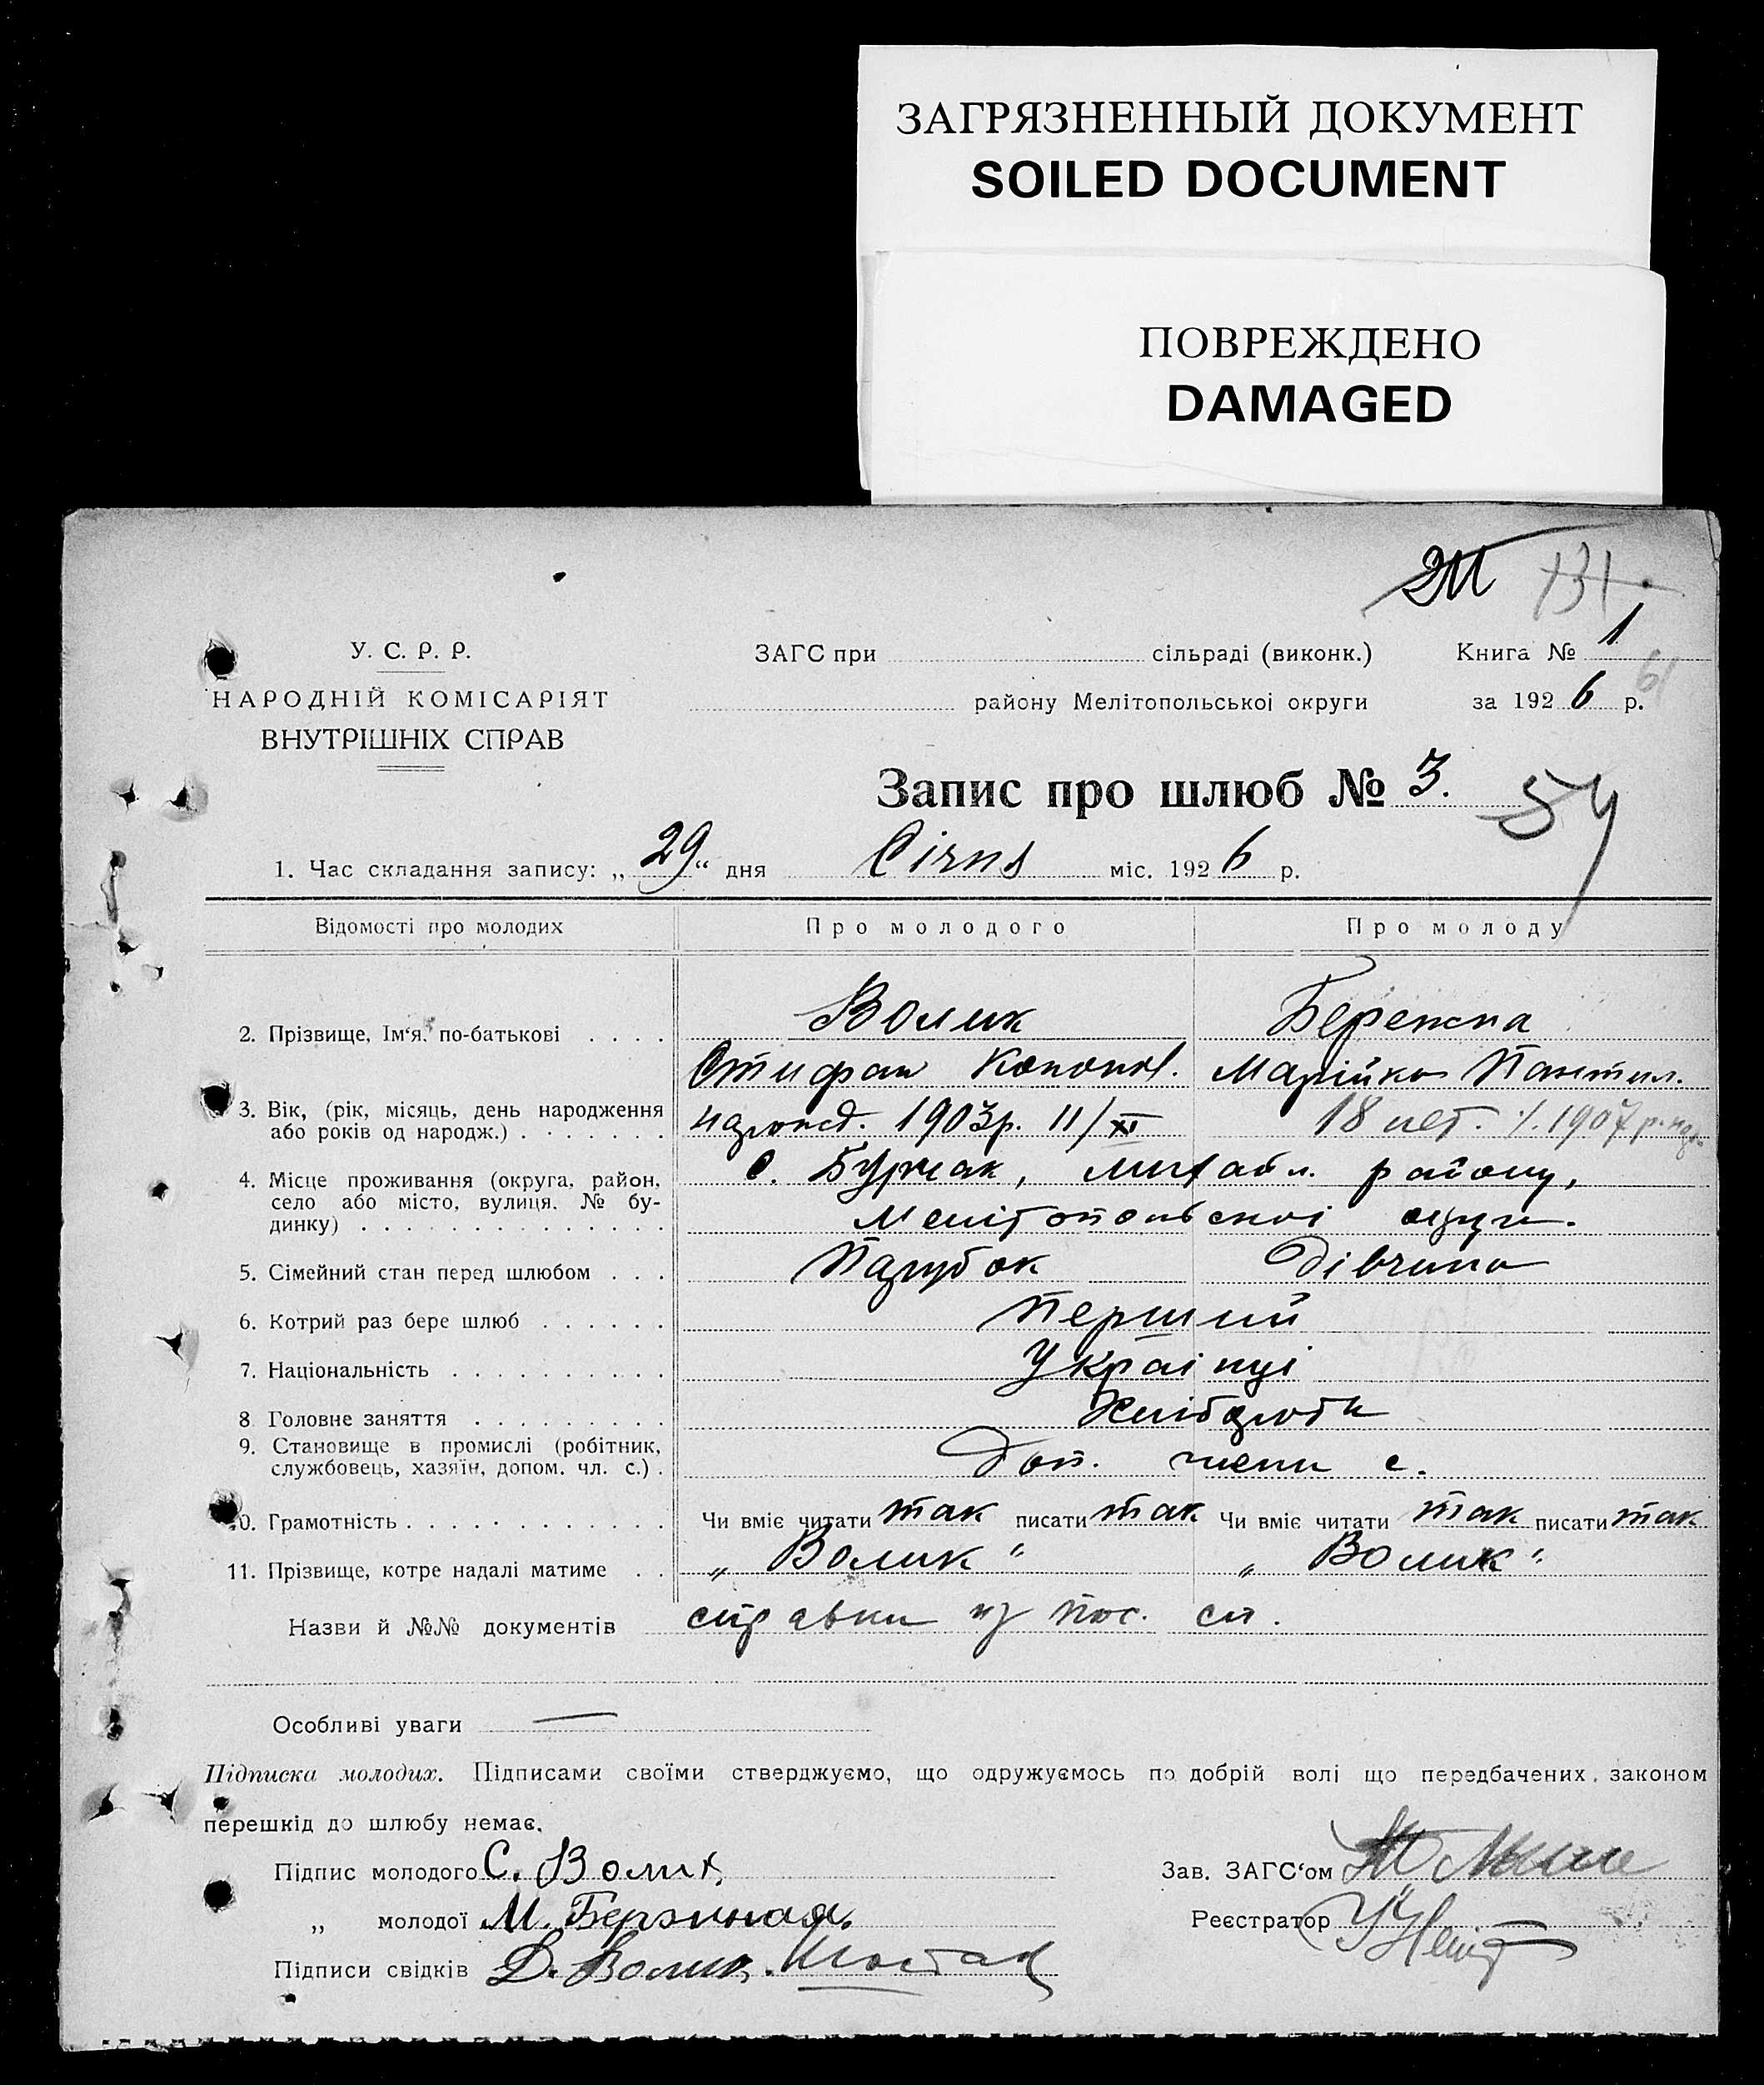 ЗАГРЯЗНЕННЫЙ ДОКУМЕНТ
SOILED DOCUMENT
ПОВРЕЖДЕНО
DAMAGED
211 131
У. С. Р. Р.
НАРОДНІЙ КОМІСАРІЯТ
ВНУТРІШНІХ СПРАВ
ЗАГС при сільраді (виконк.) Книга № 1
61
району Мелітопольської округи за 1926 р.
Запис про шлюб № 3.
54
1. Час складання запису: „29“ дня Січня міс. 1926 р.
Відомості про молодих Про молодого Про молоду
2. Прізвище, Ім‘я, по-батькові . . . . Волик Бережна
Стифан Кононов. Марійка Пантил.
3. Вік, (рік, місяць, день народження або років од народж.) 1903р. 11/XI 18 лет. 1907 р.
4. Місце проживання (округа, район, село або місто, вулиця, № будинку) с. Бурчак, Михайл. району,
Мелітопольскоі округи.
5. Сімейний стан перед шлюбом . . . Парубок Дівчина
6. Котрий раз бере шлюб . . . . . . Перший
7. Національність . . . . . . . . . . Українці
8. Головне заняття . . . . . . . . . Хлібороби
9. Становище в промислі (робітник, службовець, хазяїн, допом. чл. с.) . Доп. члени с.
10. Грамотність . . . . . . . . . . . . Чи вміє читати так писати так Чи вміє читати так писати так
11. Прізвище, котре надалі матиме . . „Волик“ „Волик“
Назви й №№ документів справки
Особливі уваги —
Підписка молодих. Підписами своїми стверджуємо, що одружуємось по добрій волі що передбачених законом
перешкід до шлюбу немає.
Підпис молодого С. Волик Зав. ЗАГС‘ом
„ молодої М. Бережная. Реєстратор
Підписи свідків Д. Волик.